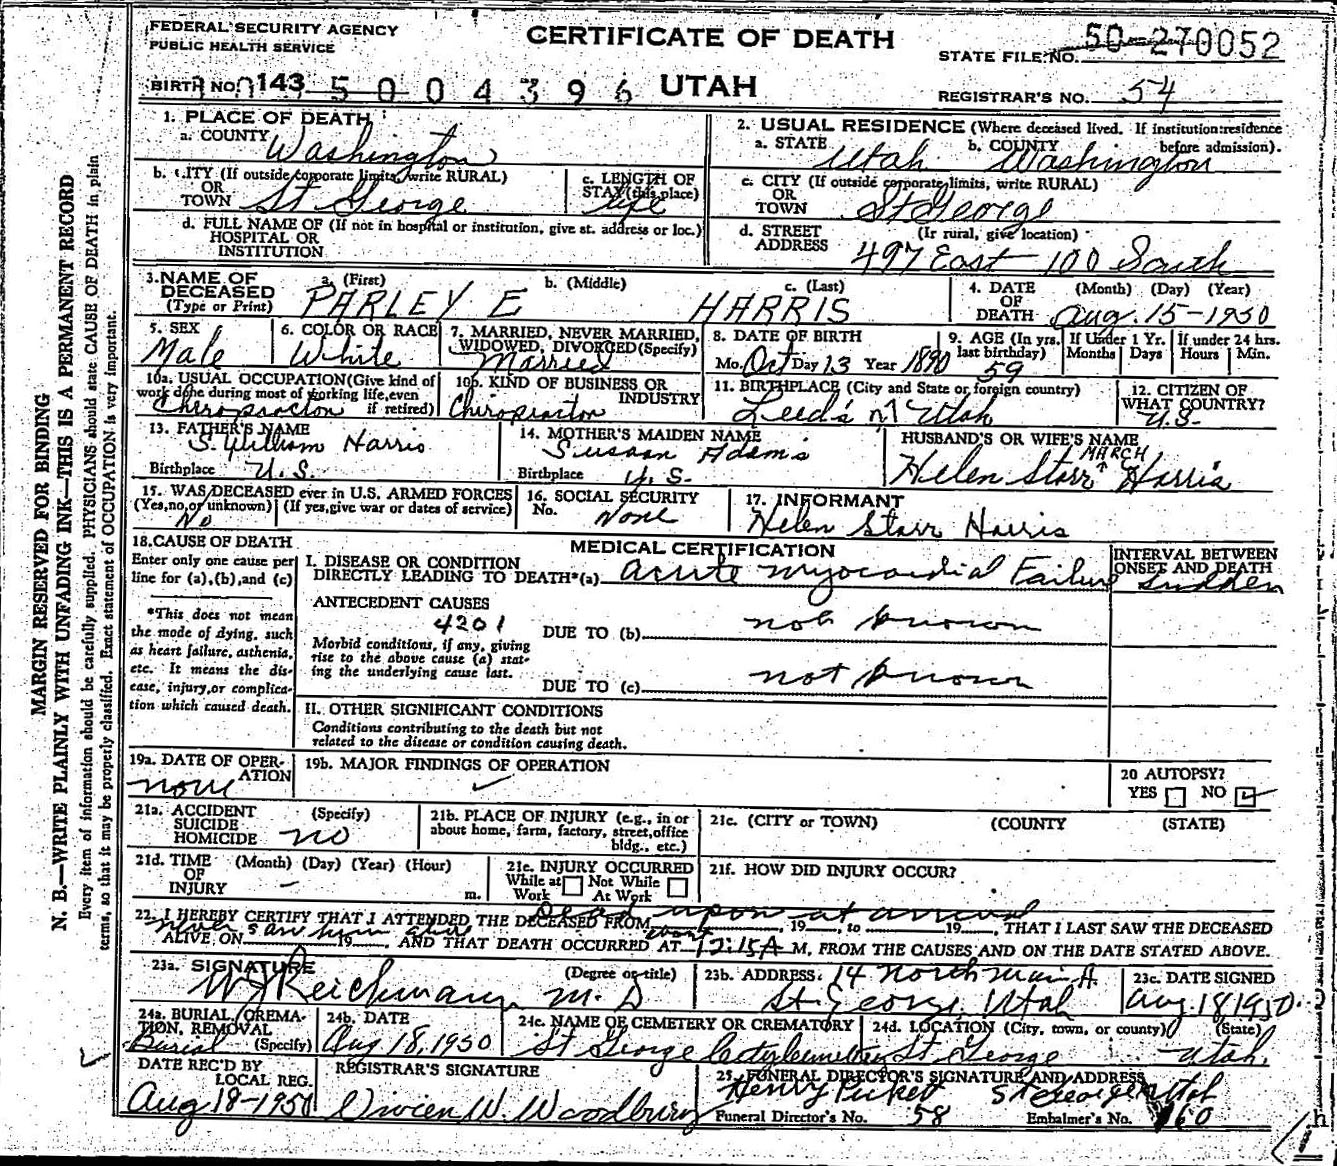 FEDERAL SECURITY AGENCY
PUBLIC HEALTH SERVICE
CERTIFICATE OF DEATH
STATE FILE NO. 50-270052
BIRTH NO. 143 5004396
UTAH
REGISTRAR'S NO. 54
1. PLACE OF DEATH
a. COUNTY Washington
2. USUAL RESIDENCE (Where deceased lived. If institution: residence before admission).
a. STATE Utah b. COUNTY Washington
b. CITY (If outside corporate limits, write RURAL) OR TOWN St George
c. LENGTH OF STAY (this place) life
c. CITY (If outside corporate limits, write RURAL) OR TOWN St George
d. FULL NAME OF (If not in hospital or institution, give st. address or loc.) HOSPITAL OR INSTITUTION
d. STREET ADDRESS (If rural, give location) 497 East 100 South
3. NAME OF DECEASED (Type or Print)
a. (First) PARLEY E b. (Middle) c. (Last) HARRIS
4. DATE OF DEATH (Month) (Day) (Year) Aug. 15-1950
5. SEX Male
6. COLOR OR RACE White
7. MARRIED, NEVER MARRIED, WIDOWED, DIVORCED (Specify) Married
8. DATE OF BIRTH Mo. Oct Day 13 Year 1890
9. AGE (In yrs. last birthday) 59
If Under 1 Yr. Months Days
If under 24 hrs. Hours Min.
10a. USUAL OCCUPATION (Give kind of work done during most of working life, even if retired) Chiropractor
10b. KIND OF BUSINESS OR INDUSTRY Chiropractor
11. BIRTHPLACE (City and State or foreign country) Leeds Utah
12. CITIZEN OF WHAT COUNTRY? U.S.
13. FATHER'S NAME S. William Harris
Birthplace U.S.
14. MOTHER'S MAIDEN NAME Susan Adams
Birthplace U.S.
HUSBAND'S OR WIFE'S NAME
MARCH
Helen Starr Harris
15. WAS DECEASED ever in U.S. ARMED FORCES
(Yes, no, or unknown) (If yes, give war or dates of service)
No
16. SOCIAL SECURITY No. None
17. INFORMANT
Helen Starr Harris
18. CAUSE OF DEATH
Enter only one cause per line for (a), (b), and (c)
*This does not mean the mode of dying, such as heart failure, asthenia, etc. It means the disease, injury, or complication which caused death.
MEDICAL CERTIFICATION
INTERVAL BETWEEN ONSET AND DEATH
I. DISEASE OR CONDITION
DIRECTLY LEADING TO DEATH*(a) acute myocardial Failure Sudden
ANTECEDENT CAUSES
4201
DUE TO (b) not known
Morbid conditions, if any, giving rise to the above cause (a) stating the underlying cause last.
DUE TO (c) not known
II. OTHER SIGNIFICANT CONDITIONS
Conditions contributing to the death but not related to the disease or condition causing death.
19a. DATE OF OPERATION none
19b. MAJOR FINDINGS OF OPERATION
20 AUTOPSY?
YES NO
21a. ACCIDENT SUICIDE HOMICIDE (Specify) NO
21b. PLACE OF INJURY (e.g., in or about home, farm, factory, street, office bldg., etc.)
21c. (CITY or TOWN) (COUNTY (STATE)
21d. TIME OF INJURY (Month) (Day) (Year) (Hour) m.
21e. INJURY OCCURRED
While at Work Not While At Work
21f. HOW DID INJURY OCCUR?
Dead upon at arrival
22. I HEREBY CERTIFY THAT I ATTENDED THE DECEASED FROM , 19 , to 19 , THAT I LAST SAW THE DECEASED
never saw him alive
ALIVE ON 19 , AND THAT DEATH OCCURRED AT about 12:15A M, FROM THE CAUSES AND ON THE DATE STATED ABOVE.
23a. SIGNATURE (Degree or title)
W J Reichmann M.D
23b. ADDRESS 14 North Main St.
St. George, Utah
23c. DATE SIGNED
Aug. 18 1950
24a. BURIAL, CREMATION, REMOVAL (Specify) Burial
24b. DATE Aug 18, 1950
24c. NAME OF CEMETERY OR CREMATORY
St George City Cemetery
24d. LOCATION (City, town, or county) (State)
St George Utah
DATE REC'D BY LOCAL REG.
Aug 18-1950
REGISTRAR'S SIGNATURE
Vivien W. Woodbury
25. FUNERAL DIRECTOR'S SIGNATURE AND ADDRESS
Henry Picket St George Utah
Funeral Director's No. 58 Embalmer's No. 160
MARGIN RESERVED FOR BINDING
N. B.—WRITE PLAINLY WITH UNFADING INK—THIS IS A PERMANENT RECORD
Every item of information should be carefully supplied. PHYSICIANS should state CAUSE OF DEATH in plain
terms, so that it may be properly classified. Exact statement of OCCUPATION is very important.